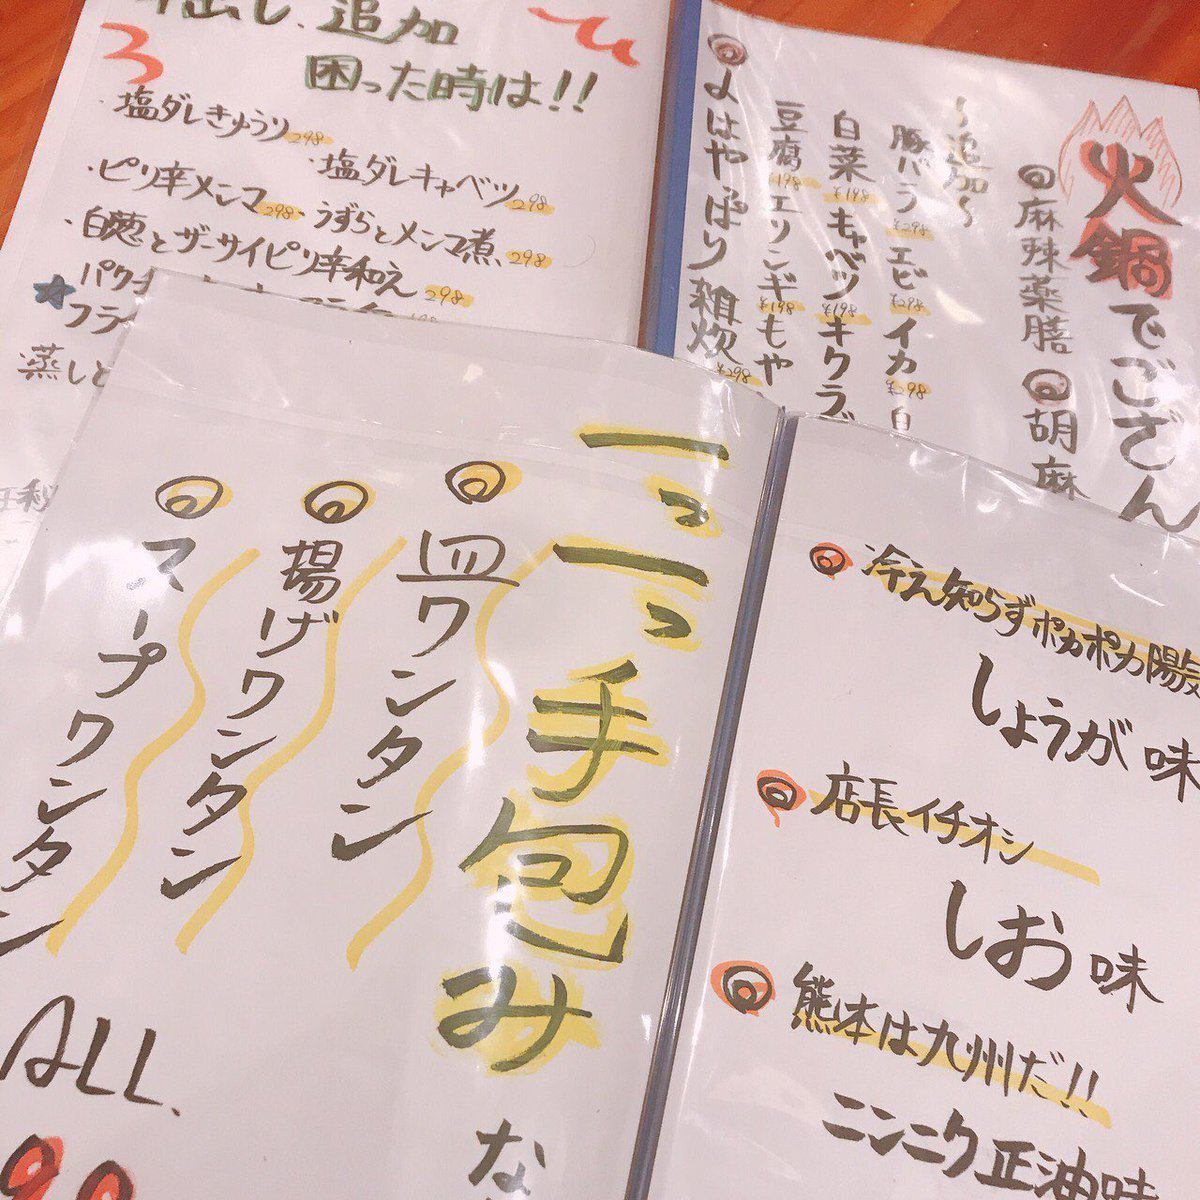 追加
困った時は!!
・塩ダレきゅうり 298
・塩ダレキャベツ 298
・ピリ辛メンマ 298
・うずらとメンマ煮 298
・白葱とザーサイピリ辛和え 298
火鍋でござん
麻辣薬膳
胡麻
〜追加〜
豚バラ ¥298 エビ ¥298 イカ ¥298 白
白菜 ¥198 キャベツ ¥198 キクラ
豆腐 ¥198 エリンギ ¥198 もや
〆はやっぱり雑炊 ¥298
一つ一つ手包み
な
皿ワンタン
揚げワンタン
スープワンタン
ALL.
冷え知らずポカポカ陽気
しょうが味
店長イチオシ
しお味
熊本は九州だ!!
ニンニク正油味